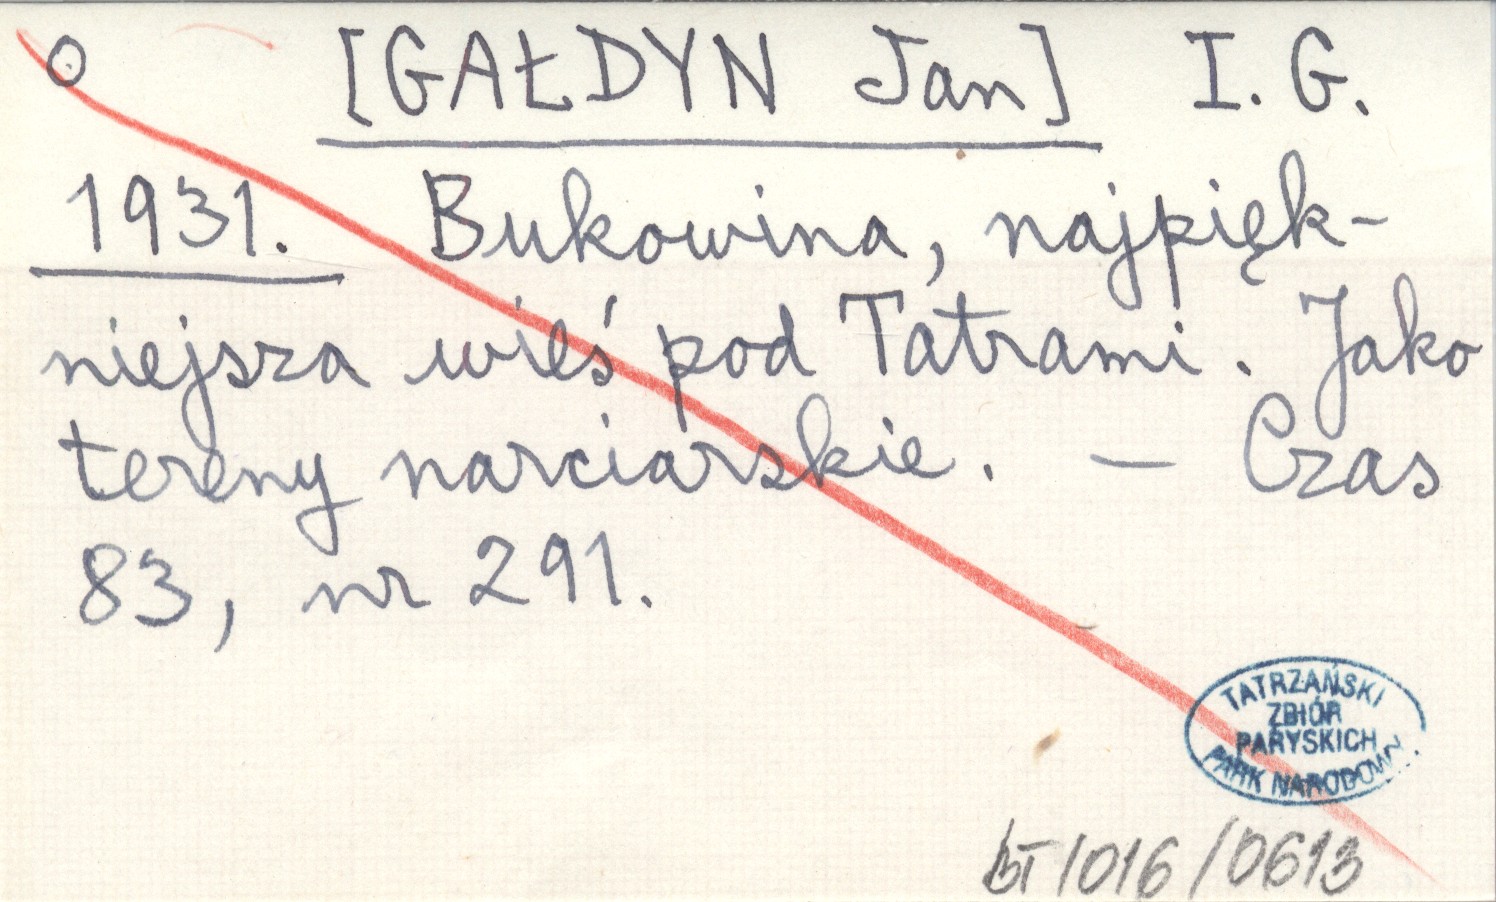 [GAŁDYN Jan] I. G.
1931. Bukowina, najpięk-
niejsza wieś pod Tatrami. Jako
tereny narciarskie. — Czas
83, nr 291.
TATRZAŃSKI
ZBIÓR
PARYSKICH
PARK NARODOWY
BT/016/0613